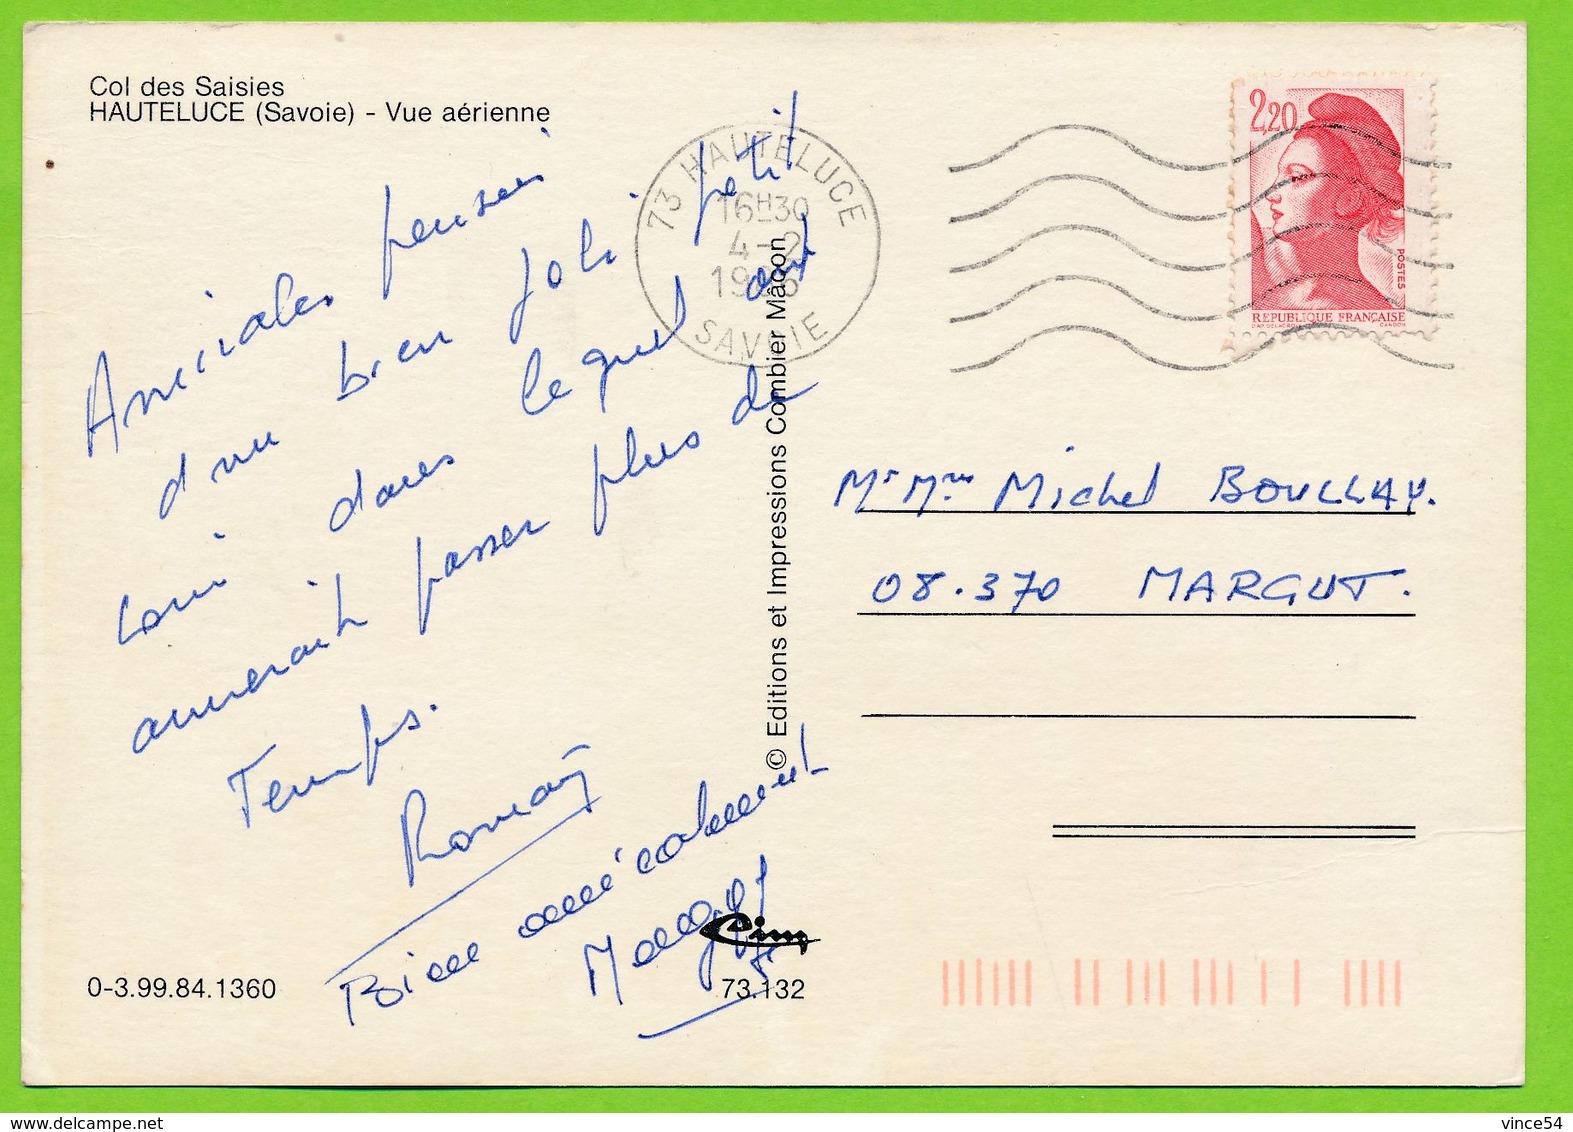 Col des Saisies
HAUTELUCE (Savoie) - Vue aérienne
Amicales pensées
d'un bien joli petit
coin dans lequel on
aimerait passer plus de
Temps.
Bien amicalement
73 HAUTELUCE
16H30
4-2
1986
SAVOIE
2,20
POSTES
REPUBLIQUE FRANÇAISE
© Editions et Impressions Combier Mâcon
Mr Mme Michel BOULLAY.
08.370 MARGUT.
Cim
0-3.99.84.1360
73.132
vince54